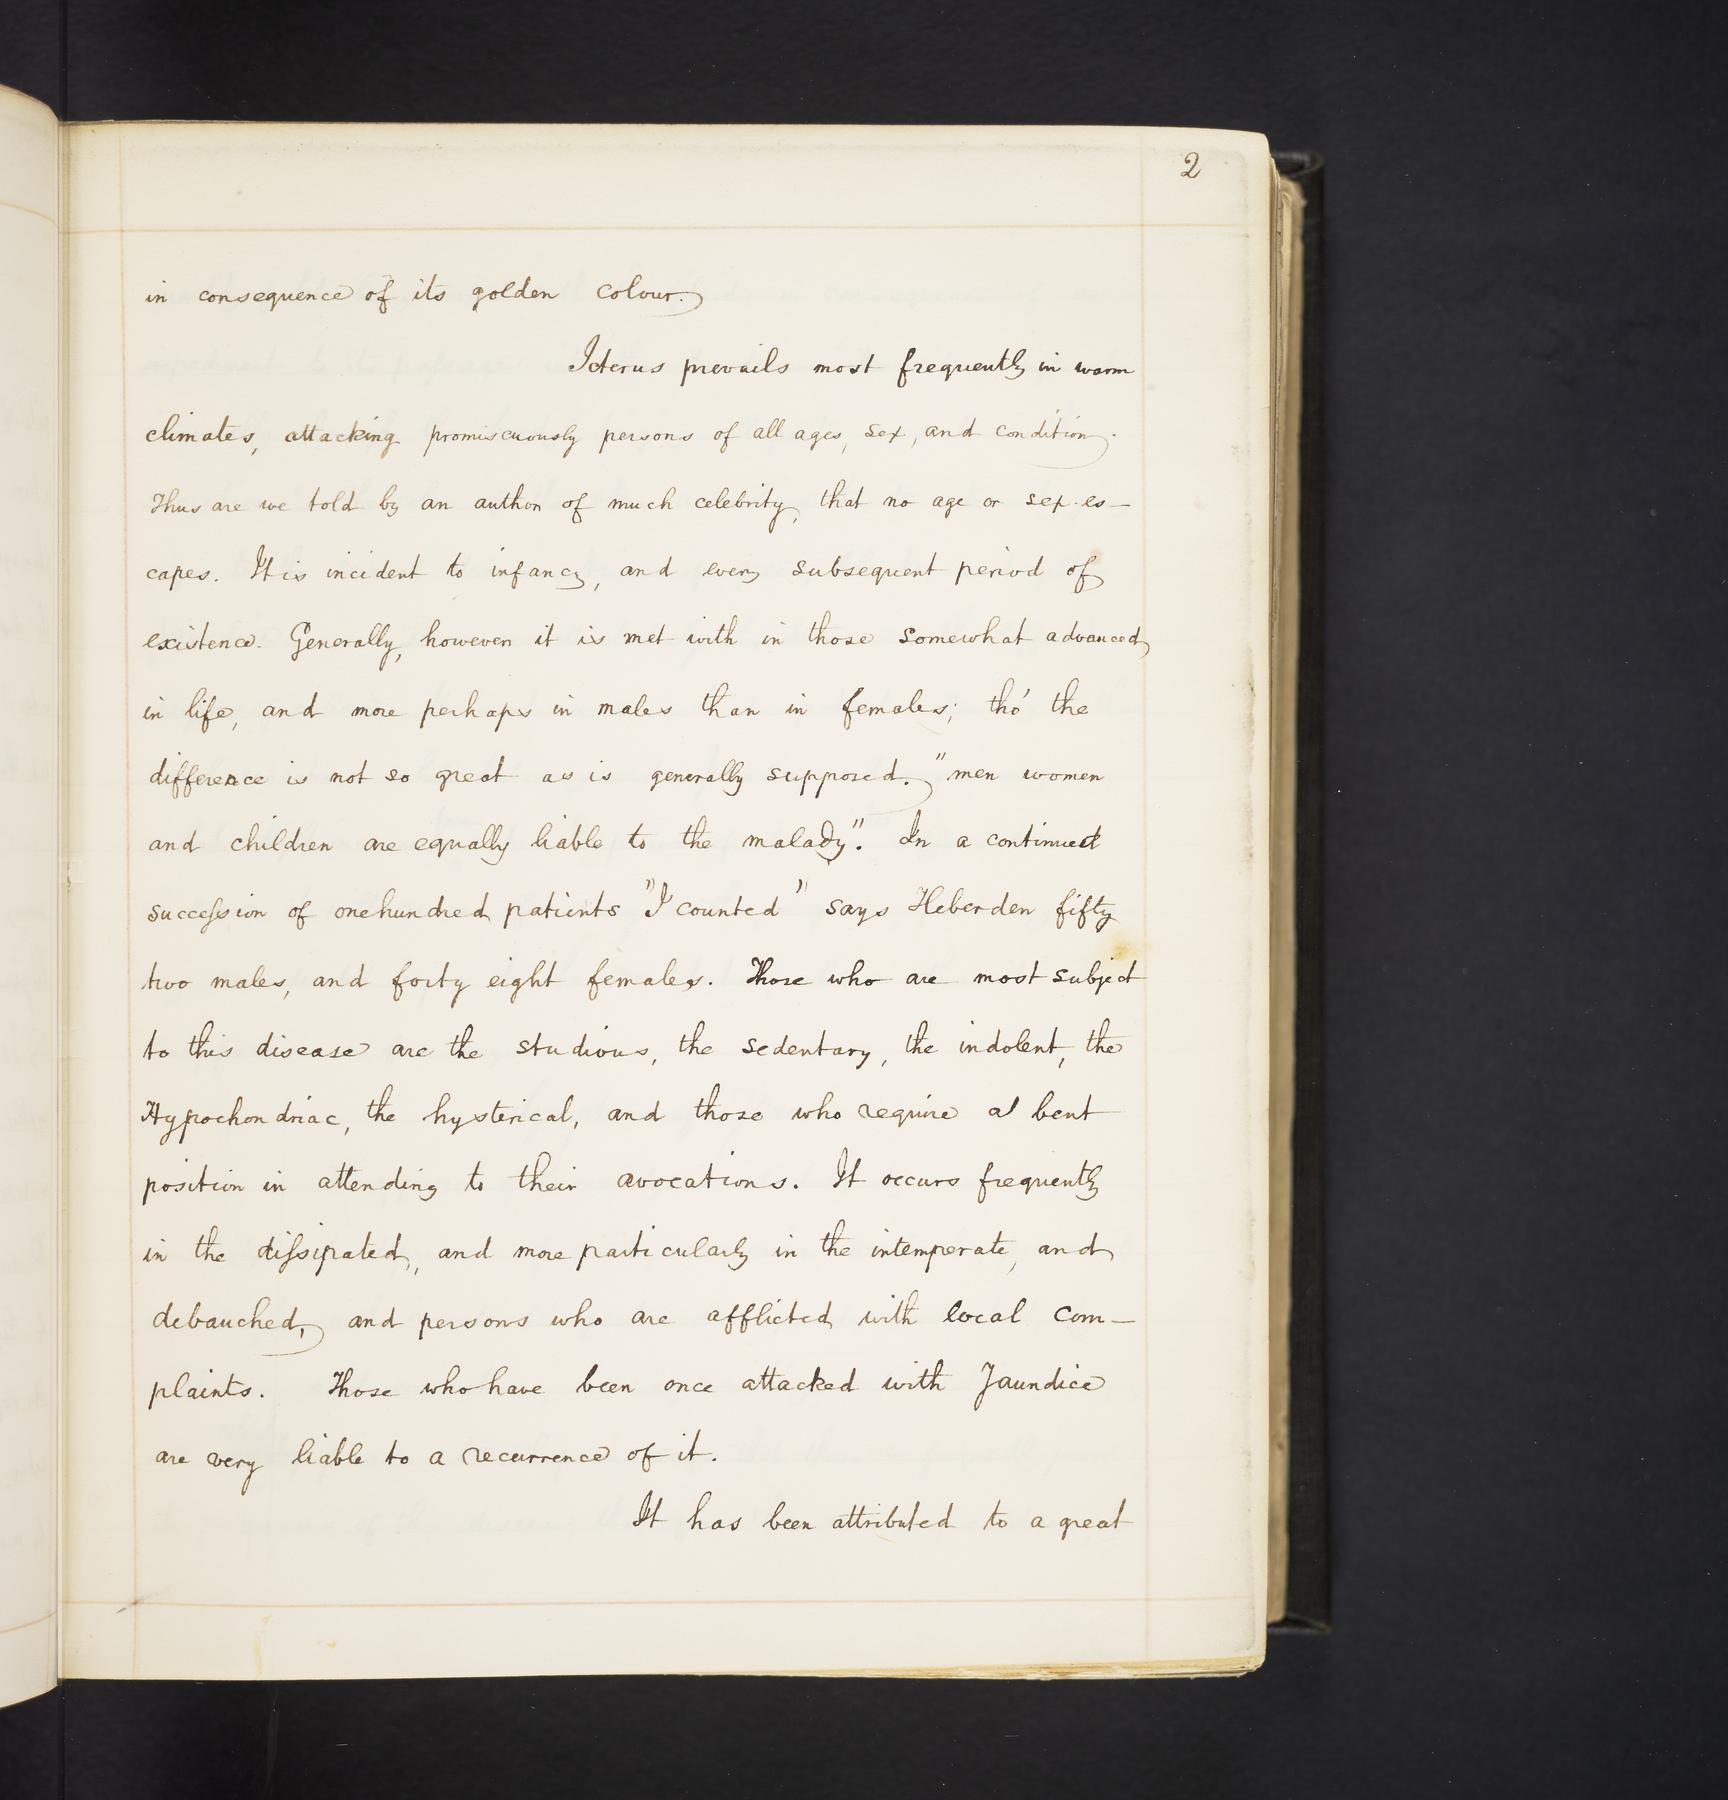 2
in consequence of its golden colour.
Icterus prevails most frequently in warm
climates, attacking promiscuously persons of all ages, sex, and condition.
Thus are we told by an author of much celebrity, that no age or sex es—
capes. It is incident to infancy, and every subsequent period of
existence. Generally, however it is met with in those somewhat advanced
in life, and more perhaps in males than in females; tho' the
difference is not so great as is generally supposed. "men women
and children are equally liable to the malady". In a continued
succession of onehundred patients "I counted" says Heberden fifty
two males, and forty eight females. Those who are most subject
to this disease are the studious, the sedentary, the indolent, the
Hypochondriac, the hysterical, and those who require a bent
position in attending to their avocations. It occurs frequently
in the dissipated, and more particularly in the intemperate, and
debauched, and persons who are afflicted with local com—
plaints. Those who have been once attacked with Jaundice
are very liable to a recurrence of it.
It has been attributed to a great